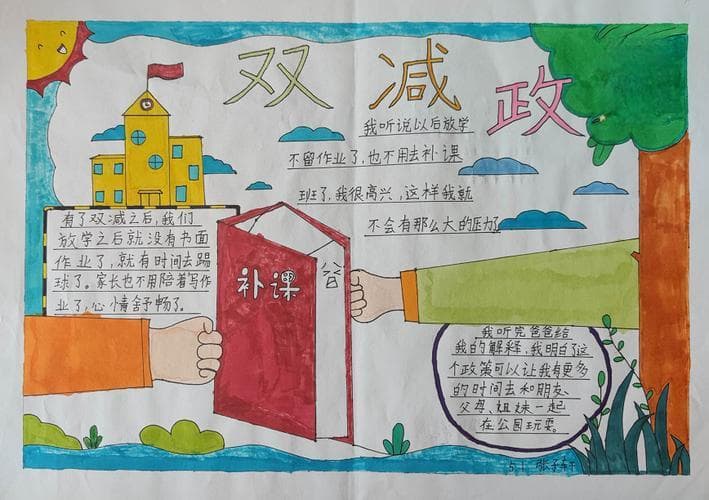 双减政
我听说以后放学
不留作业了,也不用去补课
班了,我很高兴,这样我就
不会有那么大的压力了
有了双减之后,我们
放学之后就没有书面
作业了,就有时间去踢
球了。家长也不用陪着写作
业了,心情舒畅了。
补课
我听完爸爸给
我的解释,我明白了这
个政策可以让我有更多
的时间去和朋友、
父母、姐妹一起
在公园玩耍。
5.1